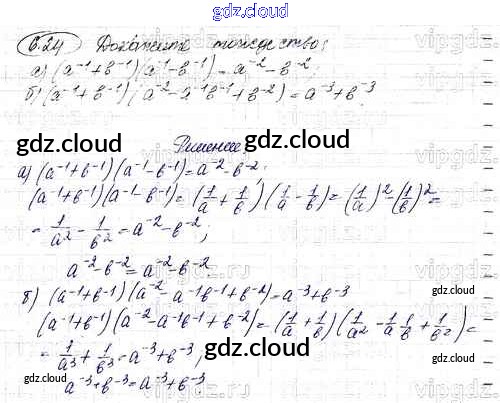 gdz.cloud
6.24 Докажите тождество:
а) (a⁻¹+b⁻¹)(a⁻¹-b⁻¹)=a⁻²-b⁻²;
б) (a⁻¹+b⁻¹)(a⁻²-a⁻¹b⁻¹+b⁻²)=a⁻³+b⁻³.
gdz.cloud gdz.cloud
Решение
а) (a⁻¹+b⁻¹)(a⁻¹-b⁻¹)=a⁻²-b⁻²;
(a⁻¹+b⁻¹)(a⁻¹-b⁻¹)=(1/a+1/b)(1/a-1/b)=(1/a)²-(1/b)²=
=1/a²-1/b²=a⁻²-b⁻²;
gdz.cloud
a⁻²-b⁻²=a⁻²-b⁻²
б) (a⁻¹+b⁻¹)(a⁻²-a⁻¹b⁻¹+b⁻²)=a⁻³+b⁻³
(a⁻¹+b⁻¹)(a⁻²-a⁻¹b⁻¹+b⁻²)=(1/a+1/b)(1/a²-1/a 1/b+1/b²)=
=1/a³+1/b³=a⁻³+b⁻³;
gdz.cloud gdz.cloud
a⁻³+b⁻³=a⁻³+b⁻³.